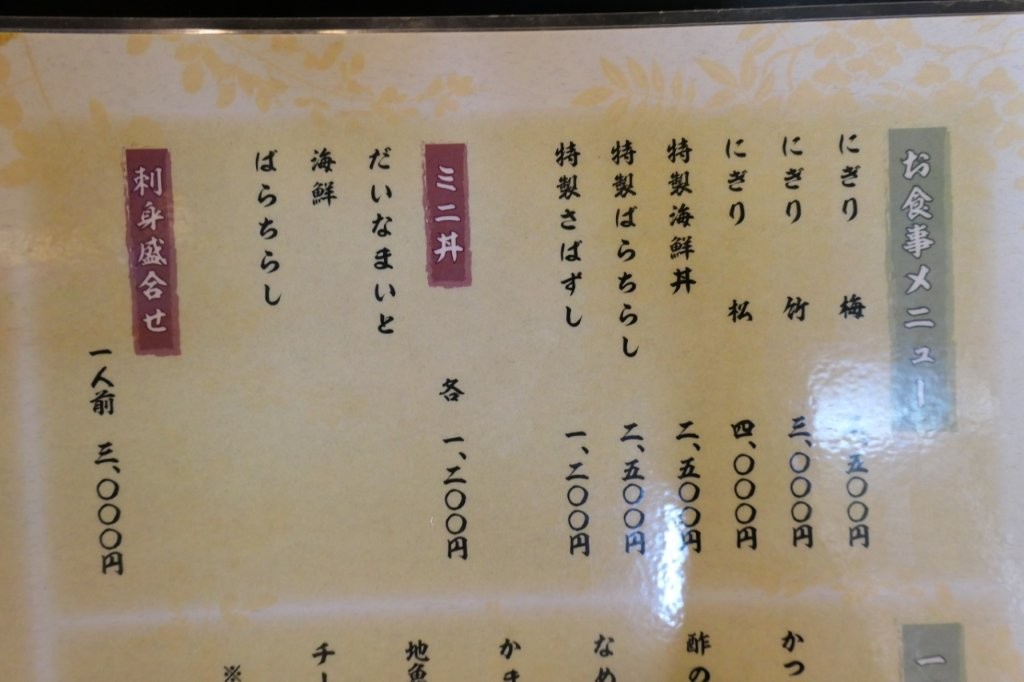 お食事メニュー
にぎり 梅 五〇〇円
にぎり 竹 三、〇〇〇円
にぎり 松 四、〇〇〇円
特製海鮮丼 二、五〇〇円
特製ばらちらし 二、五〇〇円
特製さばずし 一、二〇〇円
ミニ丼 各 一、二〇〇円
だいなまいと
海鮮
ばらちらし
刺身盛合せ
一人前 三、〇〇〇円
一
かつ
酢の
なめ
かま
地魚
チー
※